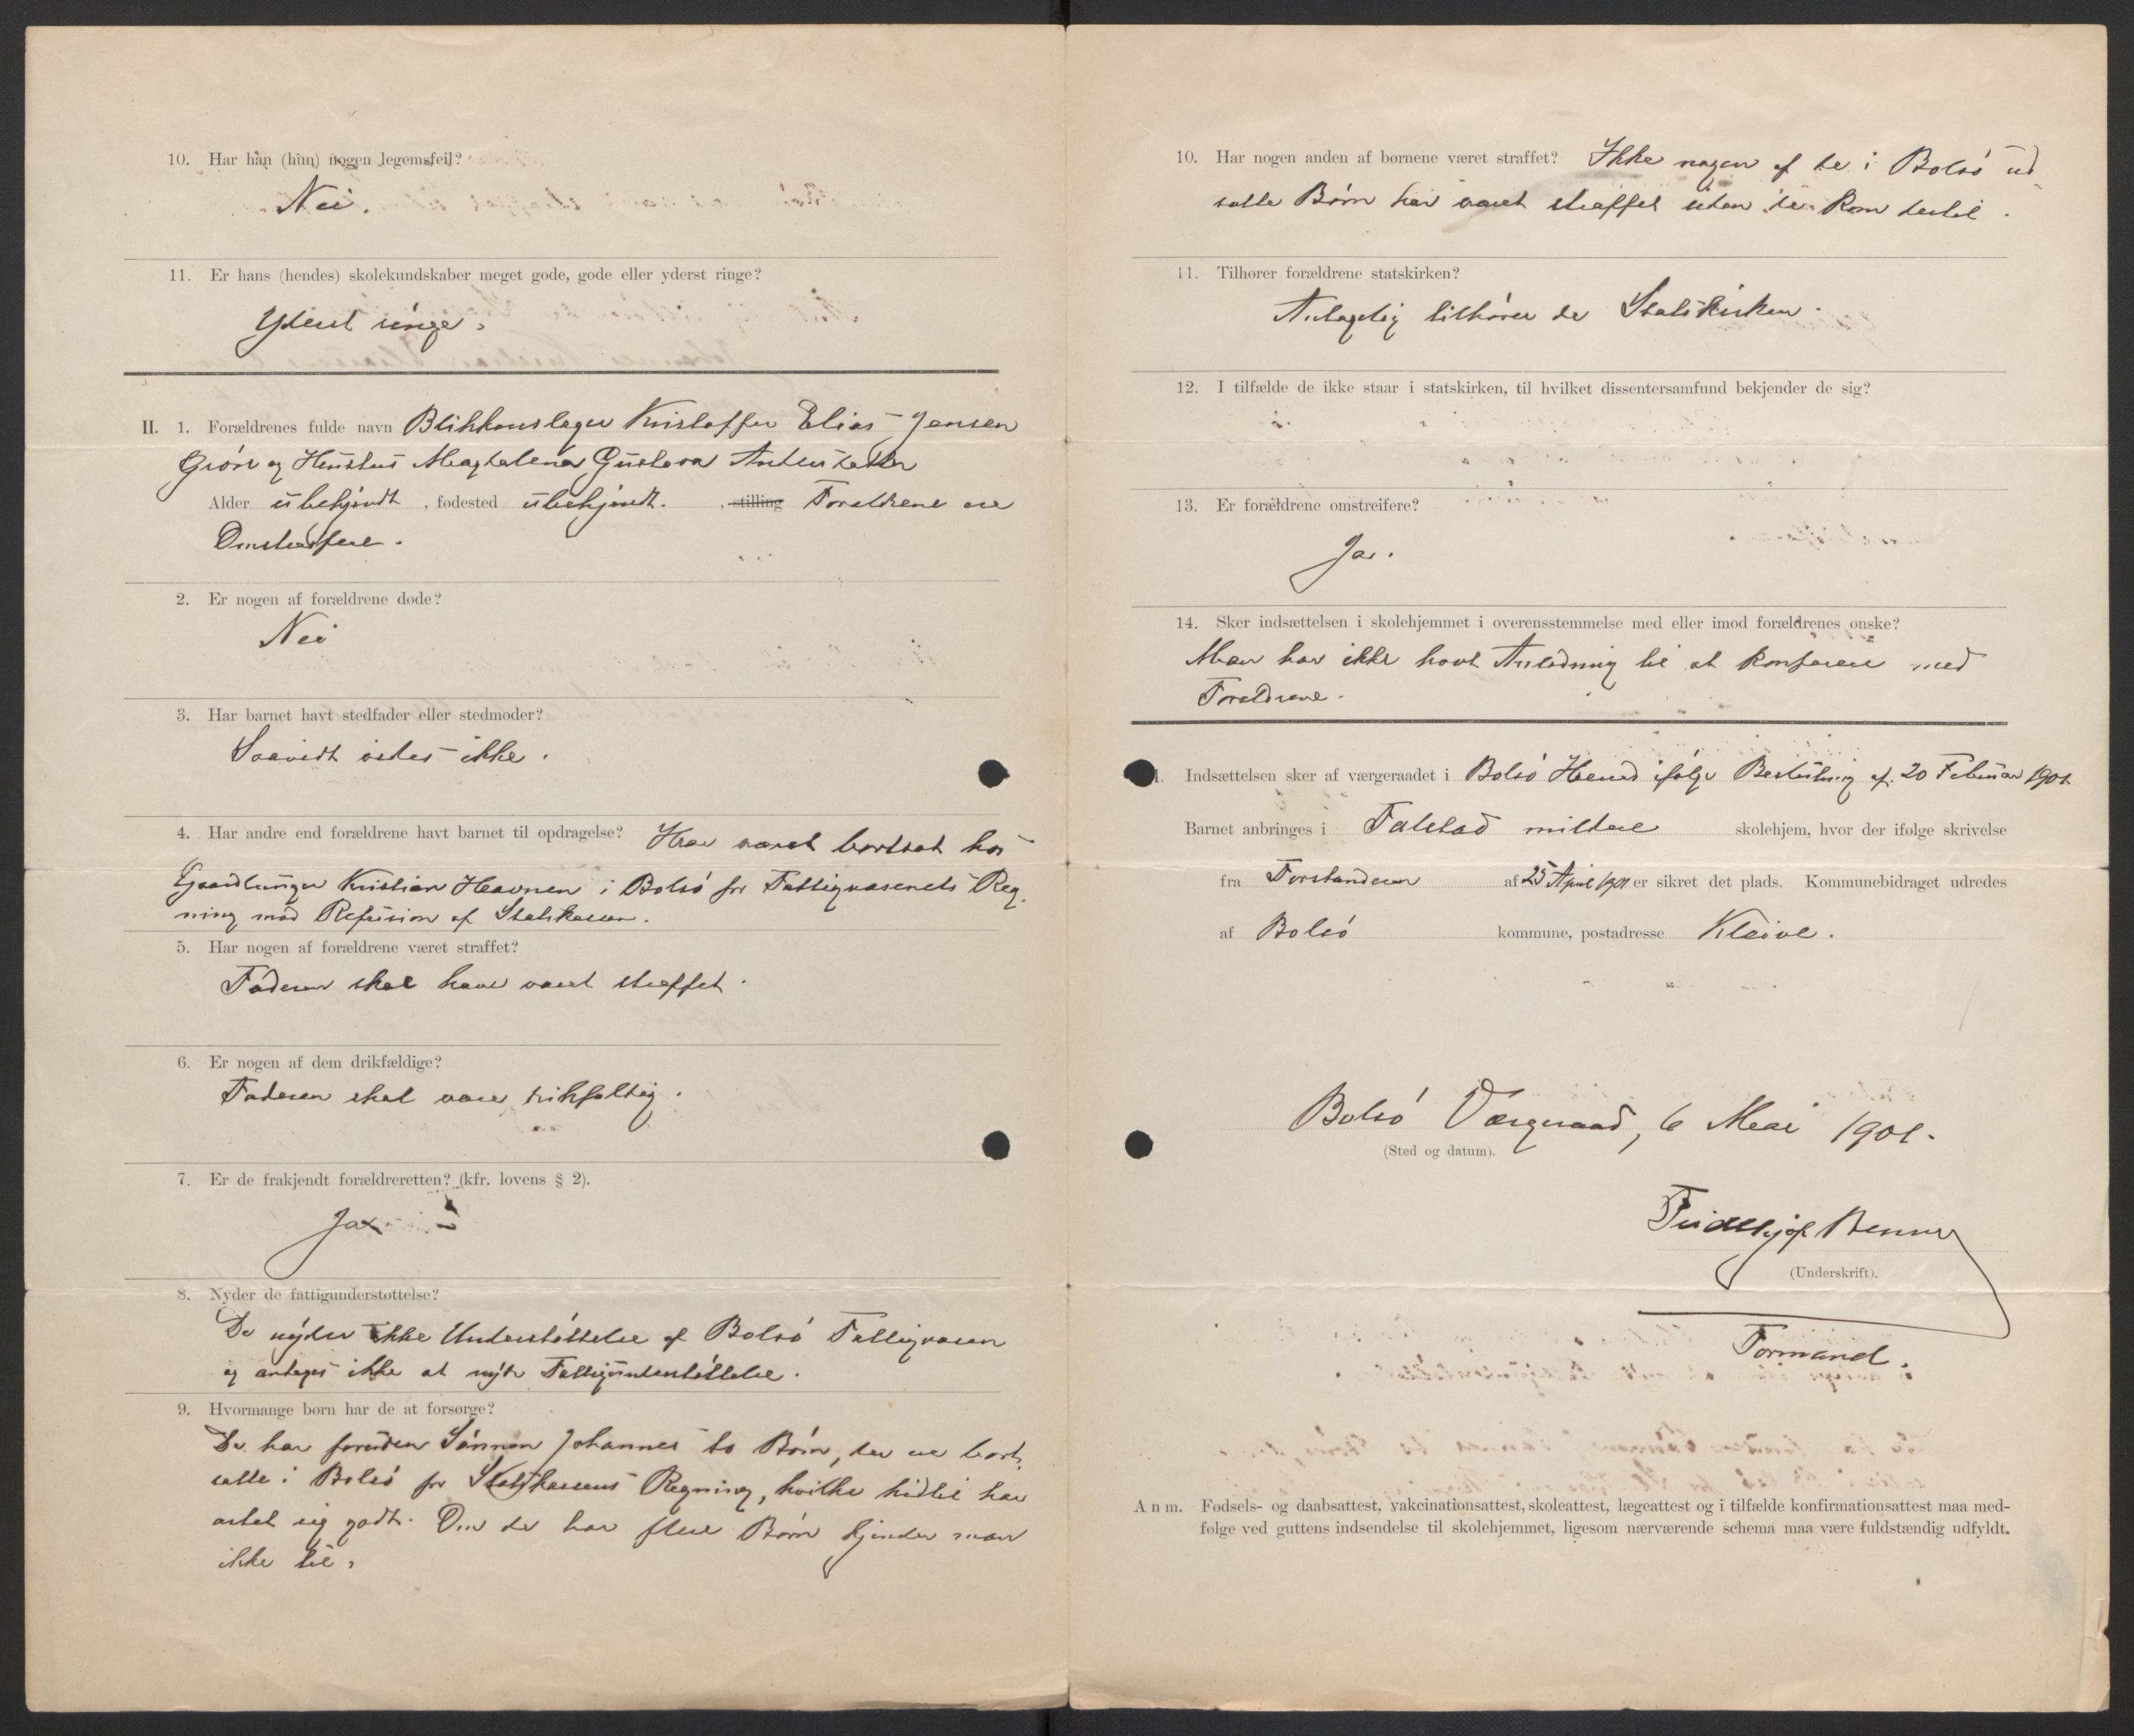 10. Har han (hun) nogen legemsfeil?
Nei.
11. Er hans (hendes) skolekundskaber meget gode, gode eller yderst ringe?
Yderst ringe.
II. 1. Forældrenes fulde navn Blikkenslager Kristoffer Elias Jensen
og Hustru Magdalena Gustava
Alder ubekjendt, fødested ubekjendt. , stilling Forældrene ere
Omstreifere.
2. Er nogen af forældrene døde?
Nei
3. Har barnet havt stedfader eller stedmoder?
Saavidt vides ikke.
4. Har andre end forældrene havt barnet til opdragelse? Har været bortsat hos
Gaardbruger Kristian i Bolsø for Fattigvæsenets Reg-
ning mod Refusion af Statskassen.
5. Har nogen af forældrene været straffet?
Faderen skal have været straffet.
6. Er nogen af dem drikfældige?
Faderen skal være drikfældig.
7. Er de frakjendt forældreretten? (kfr. lovens § 2).
Ja
8. Nyder de fattigunderstøttelse?
De nyder ikke Understøttelse af Bolsø Fattigvæsen
og antages ikke at nyde Fattigunderstøttelse.
9. Hvormange børn har de at forsørge?
De har foruden Sønnen Johannes to Børn, der ere bort-
satte i Bolsø for Statskassens Regning, hvilke hidtil har
artet sig godt. Om de har flere Børn kjender man
ikke til.
10. Har nogen anden af børnene været straffet? Ikke nogen af de i Bolsø ud
satte Børn har været straffet siden de kom dertil.
11. Tilhører forældrene statskirken?
Antagelig tilhører de Statskirken.
12. I tilfælde de ikke staar i statskirken, til hvilket dissentersamfund bekjender de sig?
13. Er forældrene omstreifere?
Ja.
14. Sker indsættelsen i skolehjemmet i overensstemmelse med eller imod forældrenes ønske?
Man har ikke havt Anledning til at konferere med
Forældrene.
Indsættelsen sker af værgeraadet i Bolsø Herred ifølge Beslutning af 20 Februar 1901
Barnet anbringes i Falstad mildere skolehjem, hvor der ifølge skrivelse
fra Forstanderen af 25 April 1901 er sikret det plads. Kommunebidraget udredes
af Bolsø kommune, postadresse Kleive.
Bolsø Værgeraad, 6 Mai 1901.
(Sted og datum).
(Underskrift).
Formand.
Anm. Fødsels- og daabsattest, vakcinationsattest, skoleattest, lægeattest og i tilfælde konfirmationsattest maa med-
følge ved guttens indsendelse til skolehjemmet, ligesom nærværende schema maa være fuldstændig udfyldt.